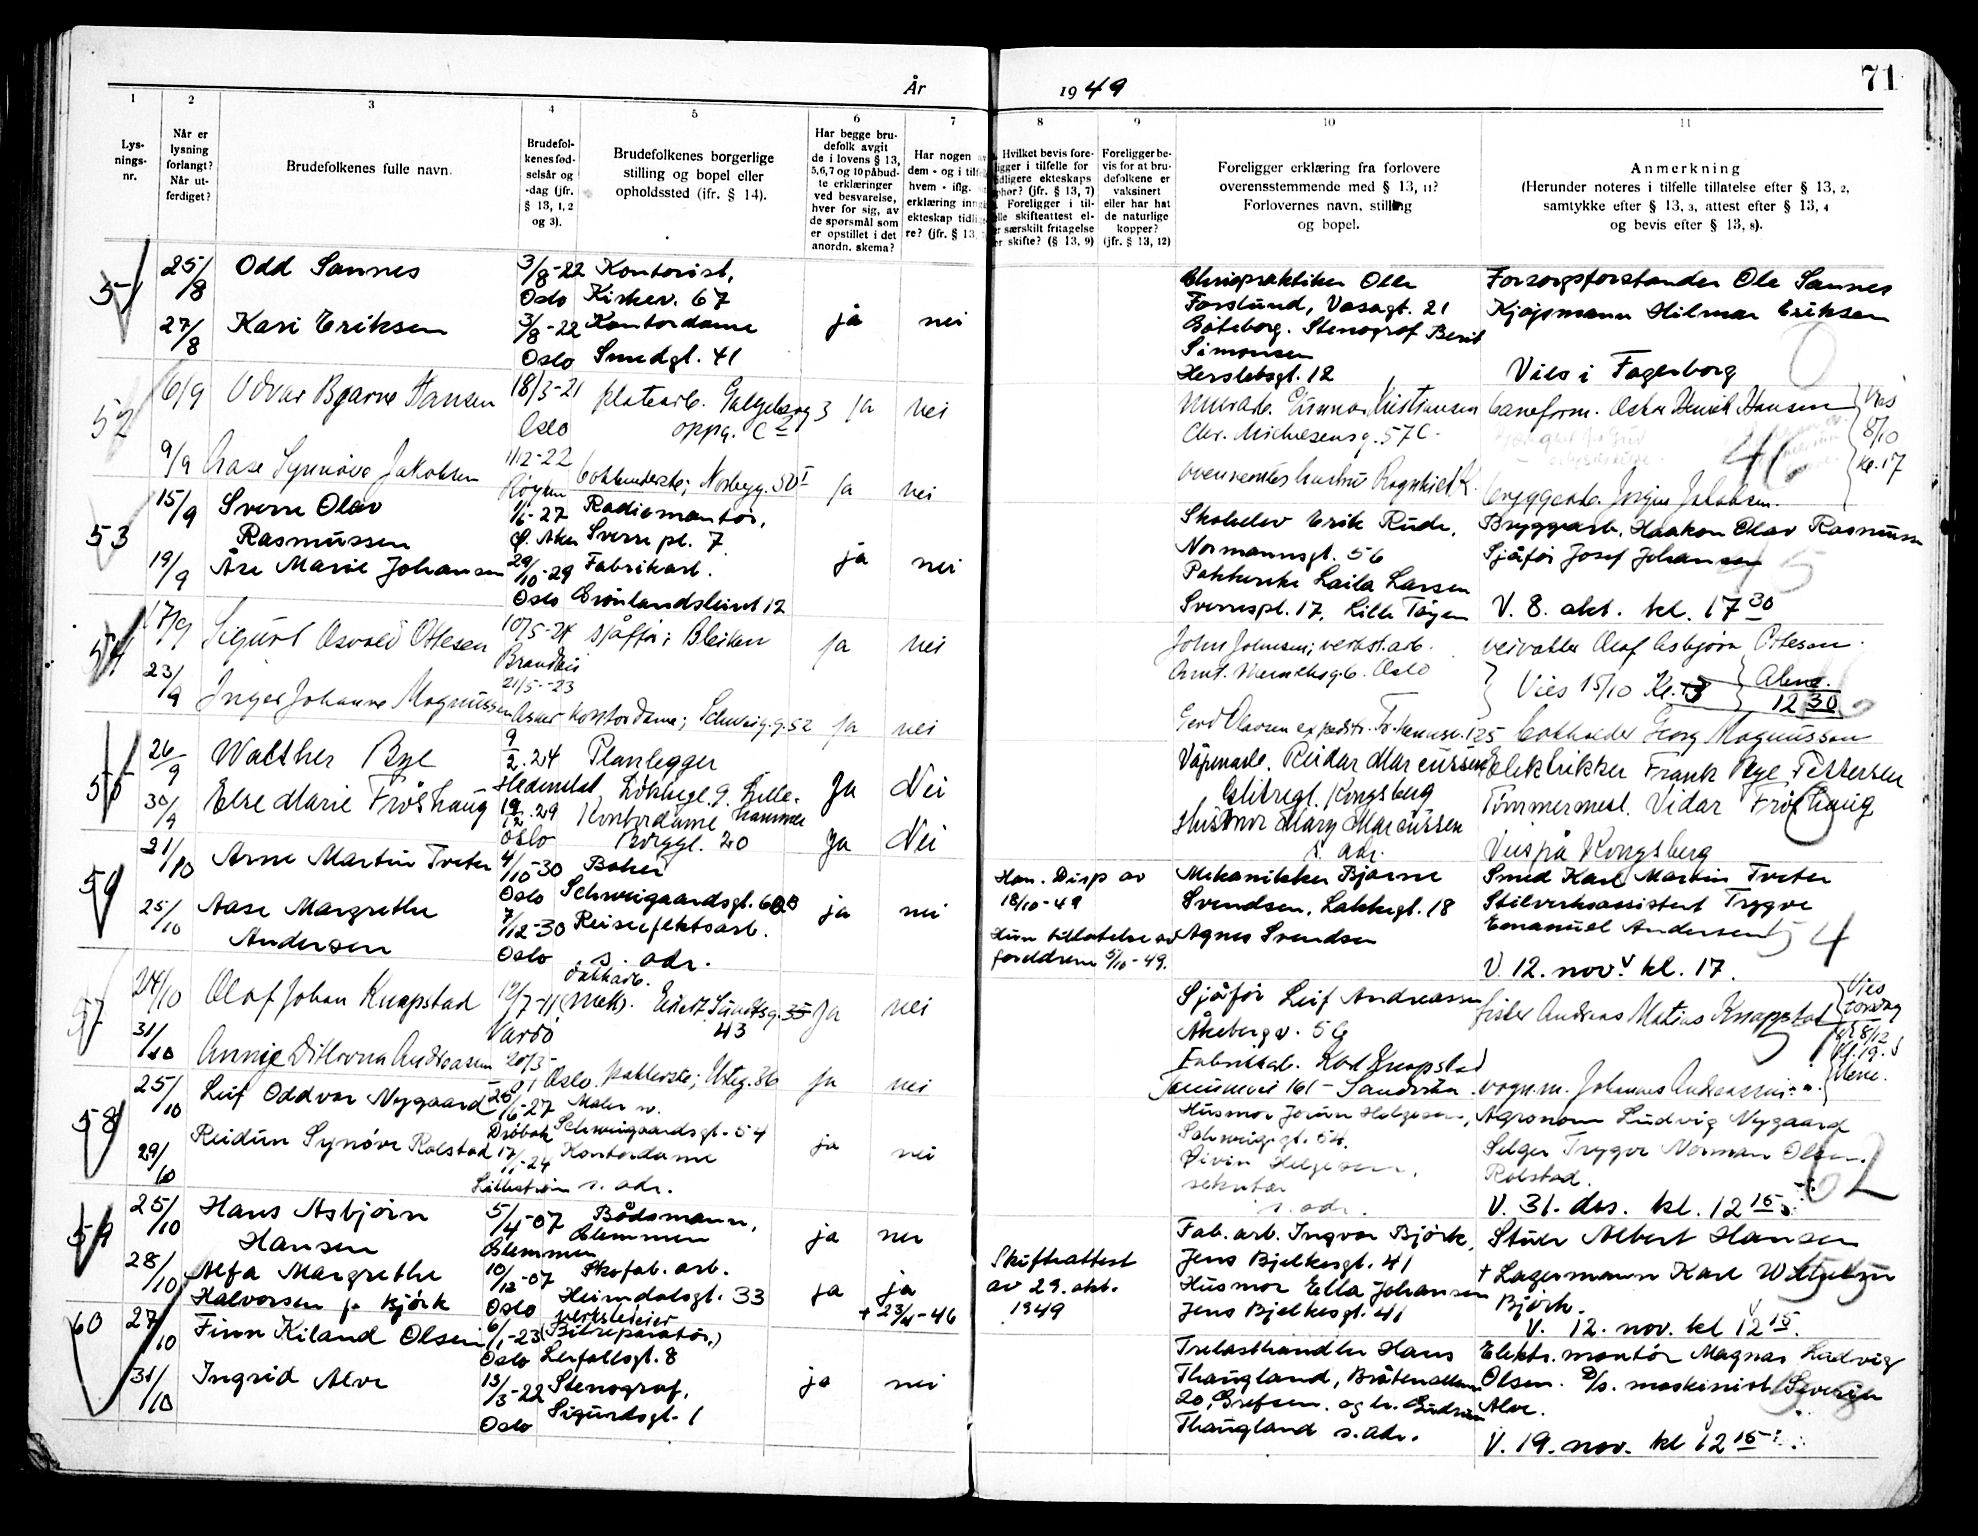 År 1949
71
1 2 3 4 5 6 7 8 9 10 11
Lys-
nings-
nr.
Når er
lysning
forlangt?
Når ut-
ferdiget?
Brudefolkenes fulle navn.
Brudefol-
kenes fød-
selsår og
-dag (jfr.
§ 13, 1, 2
og 3).
Brudefolkenes borgerlige
stilling og bopel eller
opholdssted (ifr. § 14).
Har begge bru-
defolk avgit
de i lovens § 13,
5,6,7 og 10 påbud-
te erklæringer
ved besvarelse,
hver for sig, av
de spørsmål som
er opstillet i det
anordn. skema?
Har nogen
dem - og i
hvem - iflg.
erklæring
ekteskap
re? (jfr. § 13,
Hvilket bevis fore-
ligger i tilfelle for
tidligere ekteskaps
ophør? (jfr. § 13, 7)
Foreligger i til-
felle skifteattest el-
ler særskilt fritagelse
for skifte? (§ 13, 9)
Foreligger be-
vis for at bru-
defolkene er
vaksinert
eller har hat
de naturlige
kopper?
(jfr. § 13, 12)
Foreligger erklæring fra forlovere
overensstemmende med § 13, 11?
Forlovernes navn, stilling
og bopel.
Anmerkning
(Herunder noteres i tilfelle tillatelse efter § 13, 2,
samtykke efter § 13, 3, attest efter § 13, 4
og bevis efter § 13, 8).
51 25/8 Odd Sannes 3/8-22 Kontorist,
Oslo Kirkev. 67
27/8 Kari Eriksen 3/8-22 Kontordame ja nei
Oslo Smedgt. 41
Olle
Forslund, Vasagt. 21
Göteborg. Stenograf Berit
Simonsen
Herslebsgt. 12
Forsorgsforstander Ole Sannes
Kjøpmann Hilmar Eriksen
Vies i Fagerborg
0
52 6/9 Odvar Bjarne Hansen 18/3-21 platearb. Galgeberg 3 ja nei
Oslo oppg. C
9/9 Aase Synnøve Jakobsen 11/12-22
Røyken Norbygt. 50 I ja nei
murarb. Gunnar Kristiansen
Chr. Michelsensg. 57 C.
Ragnhild K.
Oskar Henrik Hansen
bryggearb. Jørgen Jakobsen.
46
Vies
8/10
kl. 17
53 15/9 Sverre Olav
Rasmussen 1/6-27 Radiomontør,
Ø. Aker Sverrepl. 7
19/9 Åse Marie Johansen 29/10-29 Fabrikarb. ja nei
Oslo Grønlandsleiret 12
Skoelev Erik Rude,
Normannsgt. 56
Pakkerske Laila Larsen
Sverrespl. 17, Lille Tøyen
Bryggearb. Haakon Olav Rasmussen
Sjåfør Josef Johansen
V. 8. okt. kl. 17 30
54 17/9 Sigurt Osvald Ottesen 10/5-24 sjåfør; Bleiken ja nei
Brandbu
23/9 Inger Johanne Magnussen 21/5-23
Asker kontordame; Schweig.g. 52 ja nei
John Johnsen; verkst.arb.
Oslo
Gerd Olavsen
veivokter Olaf Asbjørn Ottesen.
Vies 15/10 Kl.
Alene.
12 30
Georg Magnussen
55 26/9 Walther Bye 9/2.24 Planlegger
Hedenstad Ja Nei
30/9 Else Marie Frøshaug 19/12.29 Kontordame
Oslo Borggt. 20 Ja Nei
Våpenarb. Reidar Marcussen
Kongsberg
Husmor Mary Marcussen
s. adr.
Elektriker Frank Bye Pettersen
Tømmermest. Vidar Frøshaug
Vies på Kongsberg
56 21/10 Arne Martin Tveter 4/10-30 Baker
Oslo Schweigaardsgt. 60 B
25/10 Aase Margrethe
Andersen 7/12-30 Reiseeffektarb. ja nei
Oslo s. adr.
Han. Disp av
18/10-49
Hun tillatelse av
foreldrene 5/10-49.
Mekaniker Bjarne
Svendsen, Lakkegt. 18
Agnes Svendsen
Smed Karl Martin Tveter
Stilverksassistent Trygve
Emanuel Andersen
V. 12. nov. kl. 17.
54
57 24/10 Olaf Johan Knapstad 12/7-11 (mek). Eilert Sundtsg. 43 ja nei
Vardø
31/10 Annie Andreassen 20/3-21 Oslo. pakkerske; Uteg. 36 ja nei
Sjåfør Leif Andreassen
Åkebergv. 56
Fabrikkarb. Karl Knapstad
161 - Sandvika
fisker Andreas Matias Knapstad
vogn.m. Johannes Andreassen
Vies
torsdag
8/12
kl. 19.
Alene.
58 25/10 Leif Oddvar Nygaard 26/6-27 Maler
Drøbak Schweigaardsgt. 54
29/10 Reidun Synøve Rolstad 17/11-24 Kontordame ja nei
Lillestrøm s. adr.
Husmor Jorun Helgesen,
Schweig.gt. 54.
Øivin Helgesen,
sekretær
s. adr.
Agronom Ludvig Nygaard
Selger Trygve Norman Olsen.
Rolstad.
V. 31. des. kl. 12 15
62
59 25/10 Hans Asbjørn
Hansen 5/4-07 Bådsmann, ja nei
Glemmen Glemmen
28/10 Alfa Margrethe
Halvorsen f. Bjørk 10/12-07 Skofab. arb. ja ja
Oslo Heimdalsgt. 33 + 23/4-46
Skifteattest
av 29. okt.
1949
Fab. arb. Ingvar Bjørk,
Jens Bjelkesgt. 41
Husmor Ella Johansen
Jens Bjelkesgt. 41
Stuer Albert Hansen
+ Lagermann Karl Wilhelm
Bjørk.
V. 12. nov. kl 12 15.
60 27/10 Finn Kiland Olsen 6/1-23 Verksteieier
(Bilreparatør.)
Oslo Lerfallsgt. 8
31/10 Ingrid Alve 13/3-22 Stenograf, ja nei
Oslo Sigurdsgt. 1
Trelasthandler Hans
Thaugland, Bråtenalleen
20, Grefsen. og fr. Gudrun
Thaugland s. adr.
Elektr. montør Magnus Ludvig
Olsen. D/s. maskinist Severin
Alve.
V. 19. nov. kl 12 15